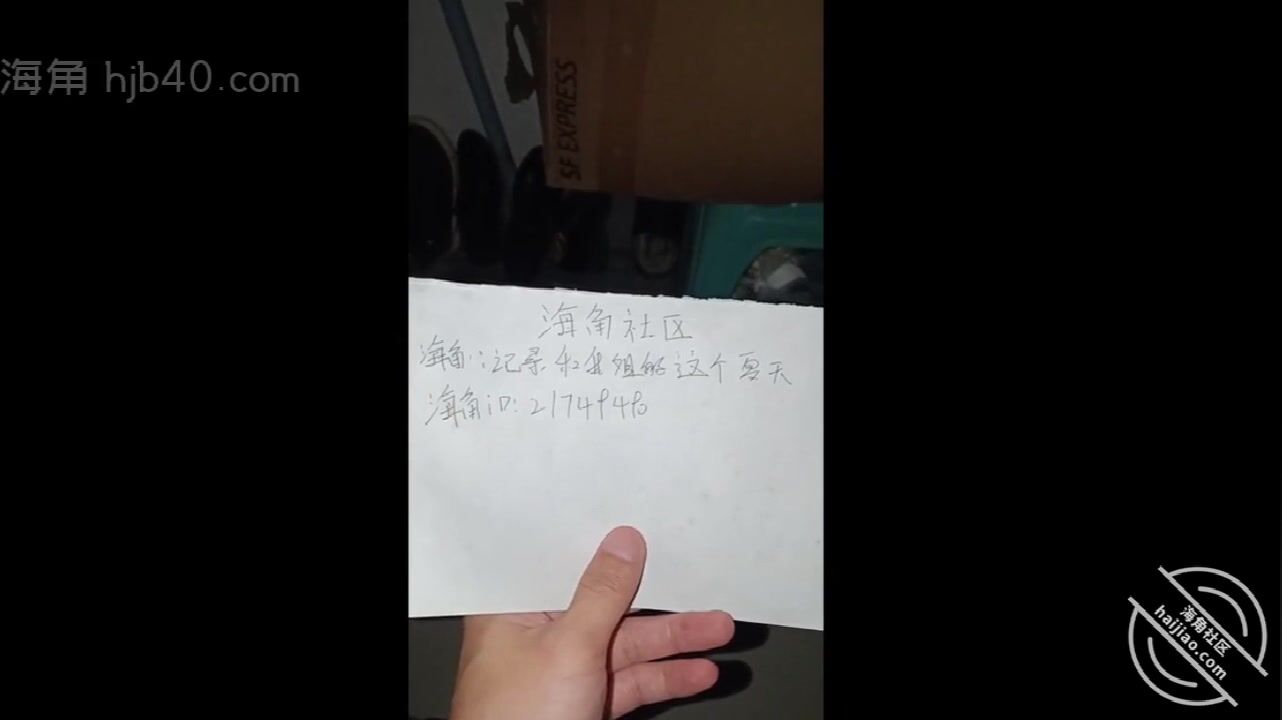 海角 hjb40.com
SF EXPRESS
海角社区
海角:记录和我姐的这个夏天
海角iD: 21749490
海角社区
haijiao.com